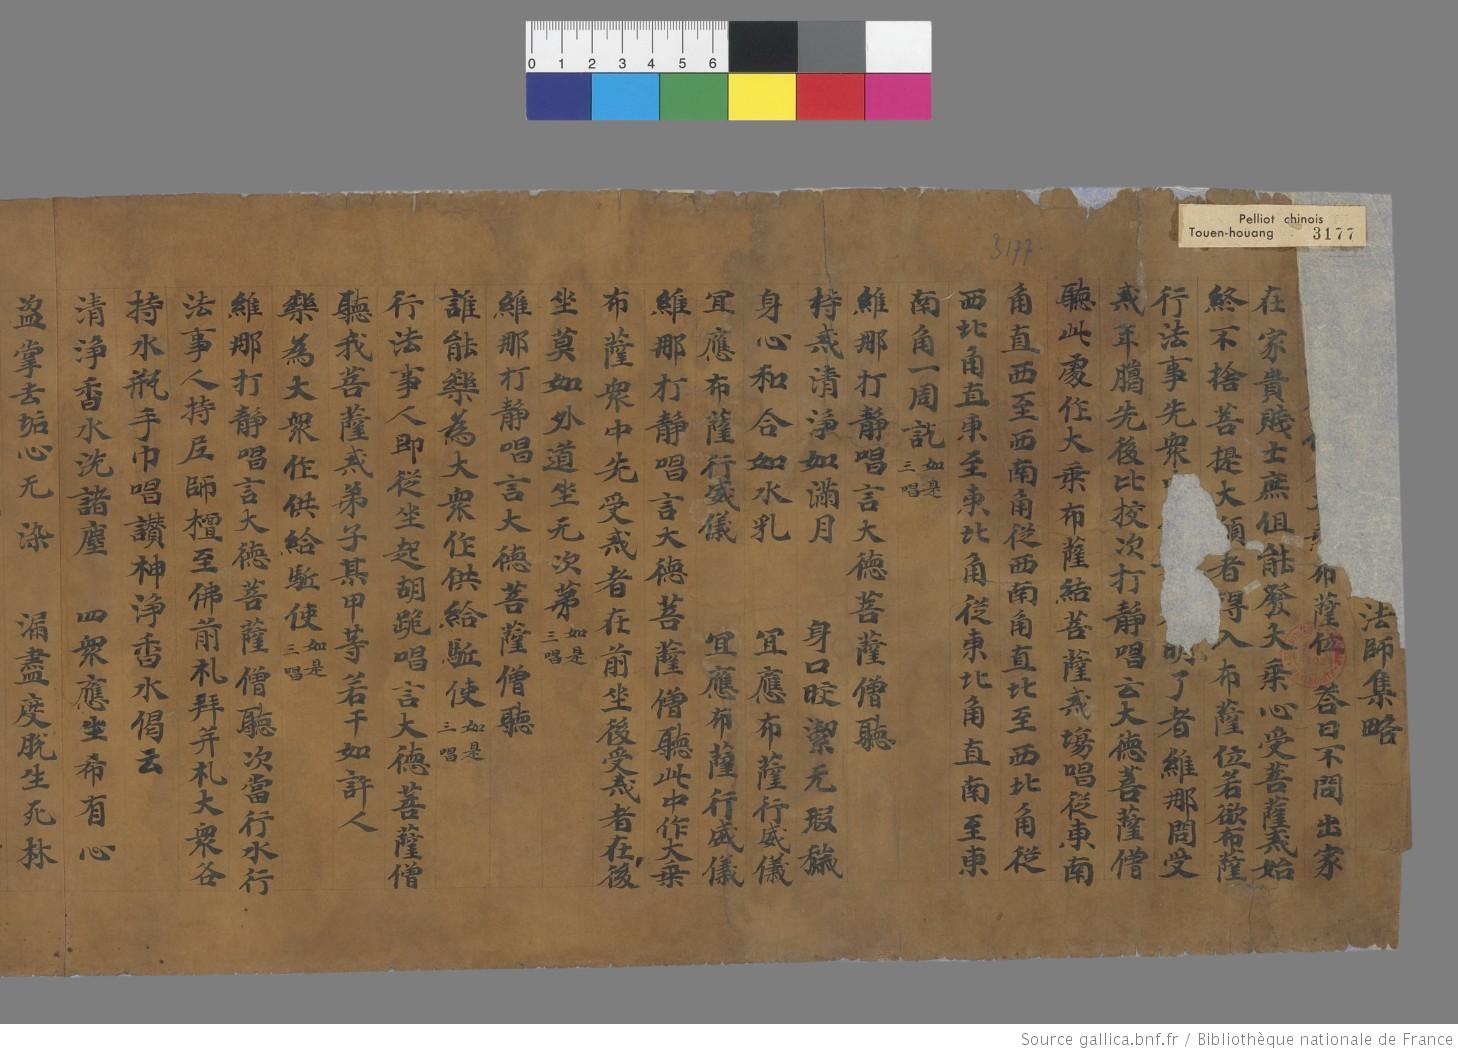 Pelliot chinois
Touen-houang 3177
3177
0 1 2 3 4 5 6
法師集略
布薩位 荅曰不問出家
在家貴賤士庶但能發大乘心受菩薩戒始
終不捨菩提大願者得入布薩位若欲布薩
行法事先衆明了者維那問受
戒年臈先後比挍次打靜唱云大德菩薩僧
聽此處作大乘布薩結菩薩戒場唱從東南
角直西至西南角從西南角直北至西北角從
西北角直東至東北角從東北角直南至東
南角一周訖如是三唱
維那打靜唱言大德菩薩僧聽
持戒清淨如滿月 身口皎潔无瑕穢
身心和合如水乳 宜應布薩行威儀
宜應布薩行威儀 宜應布薩行威儀
維那打靜唱言大德菩薩僧聽此中作大乗
布薩衆中先受戒者在前坐後受戒者在後
坐莫如外道坐无次苐如是三唱
維那打靜唱言大德菩薩僧聽
誰能樂為大衆作供給駈使如是三唱
行法事人即從坐起胡跪唱言大德菩薩僧
聽我菩薩戒弟子某甲等若干如許人
樂為大衆作供給駈使如是三唱
維那打靜唱言大德菩薩僧聽次當行水行
法事人持尼師檀至佛前礼拜并礼大衆各
持水瓶手巾唱讃神淨香水偈云
清淨香水洗諸塵 四衆應坐希有心
盥掌去垢心无染 漏盡度脫生死林
Source gallica.bnf.fr / Bibliothèque nationale de France